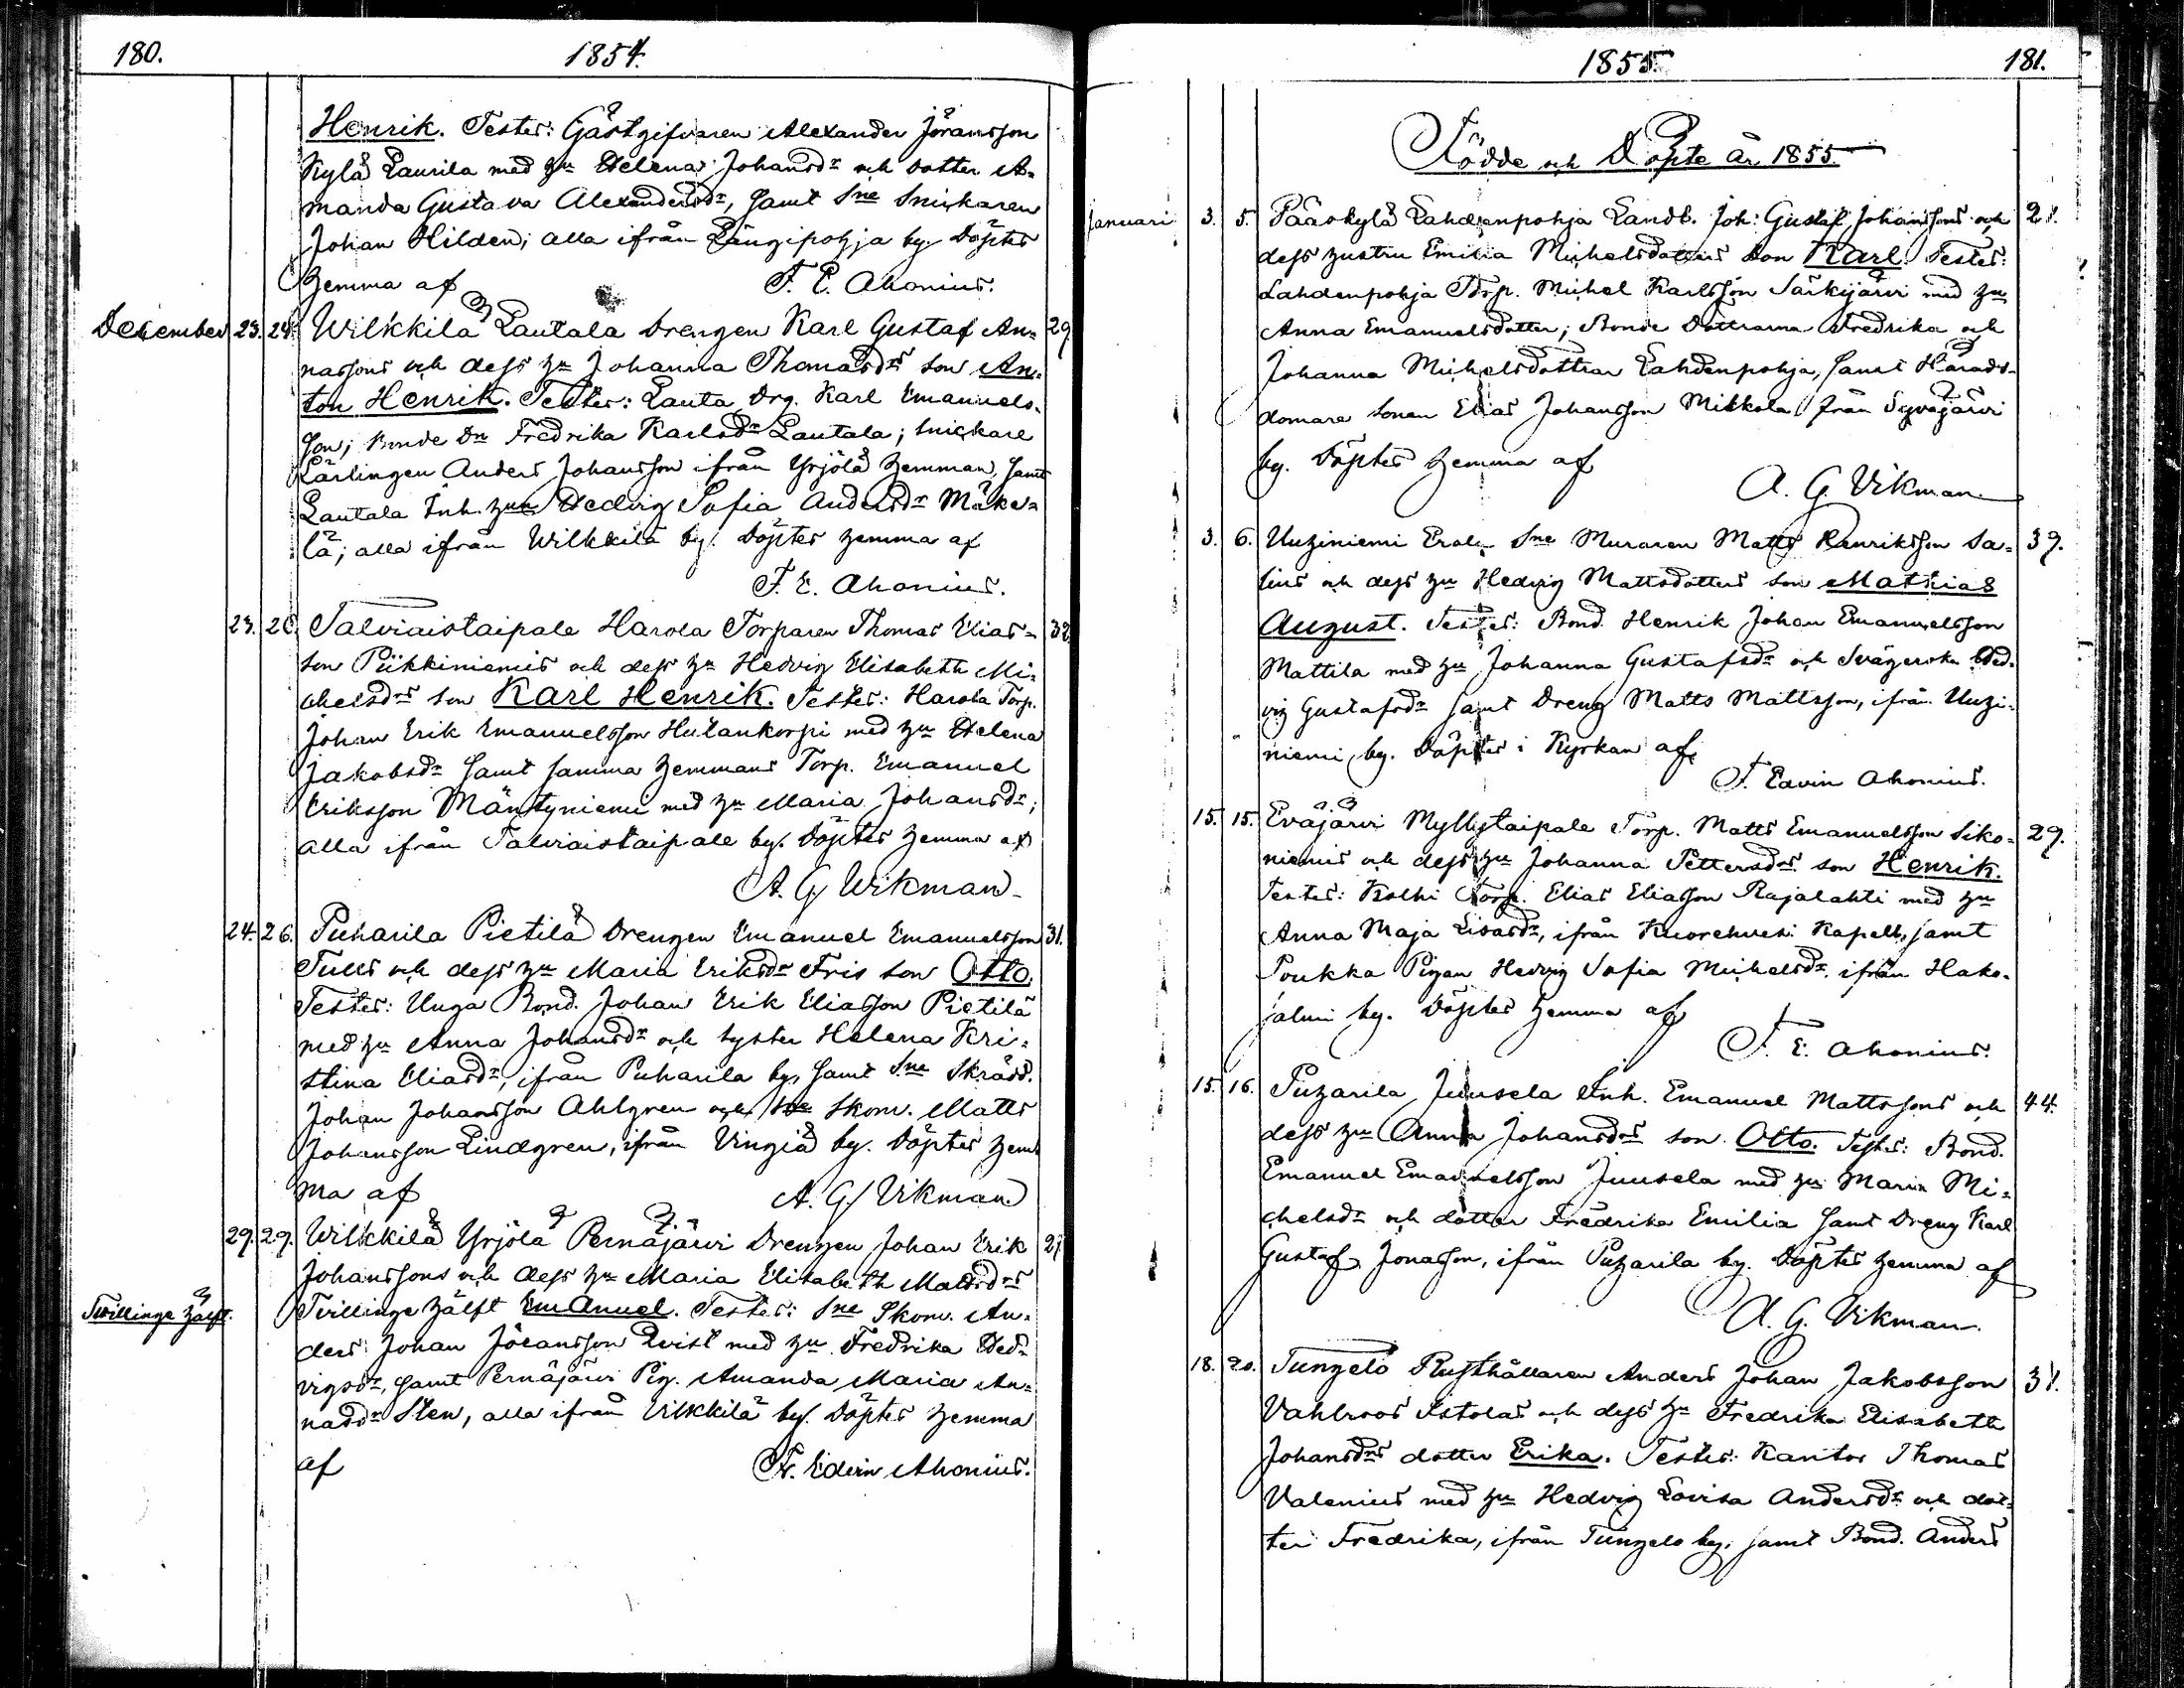 180.
1854.
Henrik. Testes: Gästgifvaren Alexander Jöransson
Kylä Laurila med hu Helena Johansdr och dotter A=
manda Gustava Alexandersdr, samt Sne Snickaren
Johan Hilden; alla ifrån Längipohja by. Döptes
hemma af F. E. Ahonius.
December 23. 24. Wilkkilä Lautala Drengen Karl Gustaf An= 29.
nassons och dess hu Johanna Thomasdrs son An=
ton Henrik. Testes: Lauta Drg. Karl Emanuels=
son; Bonde Dn Fredrika Karlsdr Lautala; Snickare
Lärlingen Anders Johansson ifrån Yrjölä hemman, samt
Lautala Inh. hun Hedvig Sofia Andersdr Mäke=
lä; alla ifrån Wilkkilä by. Döptes hemma af
F. E. Ahonius.
23. 26. Talviaistaipale Harola Torparen Thomas Elias= 32.
son Piikkiniemis och dess hu Hedvig Elisabeth Mi=
chelsdrs son Karl Henrik. Testes: Harola Torp.
Johan Erik Emanuelsson Hutankorpi med hu Helena
Jakobsdr samt samma hemmans Torp. Emanuel
Eriksson Mäntyniemi med hu Maria Johansdr;
alla ifrån Talviaistaipale by. Döptes hemma af
A. G. Wikman
24. 26. Puharila Pietilä Drengen Emanuel Emanuelsson 31.
Tulls och dess hu Maria Eriksdr Fris son Otto.
Testes: Unga Bond. Johan Erik Eliasson Pietilä
med hu Anna Johansdr och syster Helena Kri=
stina Eliasdr, ifrån Puharila by, samt Sne Skrädd.
Johan Johansson Ahlgren och Sne Skom. Matts
Johansson Lindgren, ifrån Vingiä by. Döptes hem=
ma af A. G. Vikman
29. 29. Wilkkilä Yrjölä Pernäjärvi Drengen Johan Erik 27.
Johanssons och dess hu Maria Elisabeth Mattsdrs
Tvillinge hälft. Tvillinge hälft Emanuel. Testes: Sne Skom. An=
ders Johan Jöransson Qvist med hu Fredrika Hed=
vigsdr, samt Pernäjärvi Pig. Amanda Maria An=
nasdr Sten, alla ifrån Vilkkilä by. Döptes hemma
af Fr. Edvin Ahonius.
1855.
181.
Födde och Döpte År 1855.
Januari 3. 5. Pääskylä Lahdenpohja Landb. Joh: Gustaf Johanssons och 21.
dess hustru Emilia Michelsdotters Son Karl. Testes:
Lahdenpohja Torp. Michel Karlsson Särkijärvi med hu
Anna Emanuelsdotter; Bonde Döttrarna Fredrika och
Johanna Michelsdöttrar Lahdenpohja, samt Härads=
domare sonen Elias Johansson Mikkola från Syväjärvi
by. Döptes hemma af
A. G. Vikman.
3. 6. Uuhiniemi Erola Sne Muraren Matts Henriksson Sa= 39.
lins och dess hu Hedvig Mattsdotters son Mathias
August. Testes: Bond. Henrik Johan Emanuelsson
Mattila med hu Johanna Gustafsdr och Svägerska Hed=
vig Gustafsdr samt Dreng Matts Mattsson, ifrån Uuhi=
niemi by. Döptes i Kyrkan af
F. Edvin Ahonius.
15. 15. Eväjärvi Myllystaipale Torp. Matts Emanuelsson Siko= 29.
niemis och dess hu Johanna Pettersdrs son Henrik.
Testes: Kolhi Torp. Elias Eliasson Rajalahti med hu
Anna Maja Lisasdr, ifrån Kuorehvesi Kapell, samt
Poukka Pigan Hedvig Sofia Michelsdr ifrån Hako=
salmi by. Döptes hemma af
F. E. Ahonius.
15. 16. Puharila Juusela Inh. Emanuel Mattssons och 44.
dess hu Anna Johansdrs son Otto. Testes: Bond.
Emanuel Emanuelsson Juusela med hu Maria Mi=
chelsdr och dotter Fredrika Emilia samt Dreng Karl
Gustaf Jonasson, ifrån Puharila by. Döptes hemma af
A. G. Vikman.
18. 20. Tunhelo Rusthållaren Anders Johan Jakobsson 31.
Vahlroos Istolas och dess hu Fredrika Elisabeth
Johansdrs dotter Erika. Testes: Kantor Thomas
Valenius med hu Hedvig Lovisa Andersdr och dot=
ter Fredrika, ifrån Tunhelo by, samt Bond. Anders